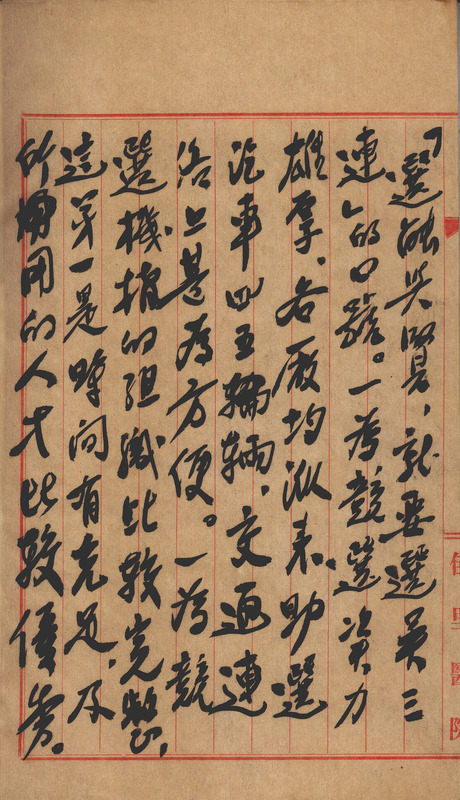 「選能與賢,就要選吳三
連」的口號。一為競選資力
雄厚.各廠均派來助選
汽車四五輛輛,交通連
絡上甚為方便。一為競
選機構的組織比較完整,
這第一是時間有充足,及
所擁用的人才比較優秀。
佳里醫院